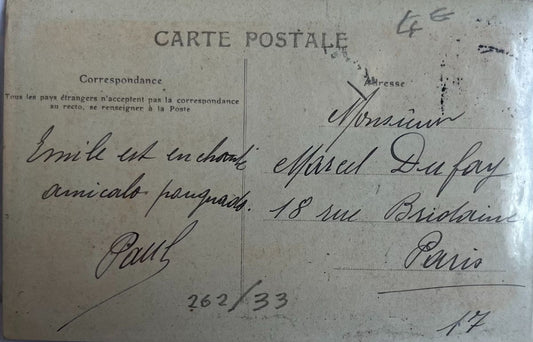 4€
CARTE POSTALE
Correspondance
Tous les pays étrangers n'acceptent pas la correspondance
au recto, se renseigner à la Poste
Adresse
Emile est enchanté
amicale poignade.
Paul
Monsieur
Marcel Dufay
18 rue Bridaine
Paris
17
262/33